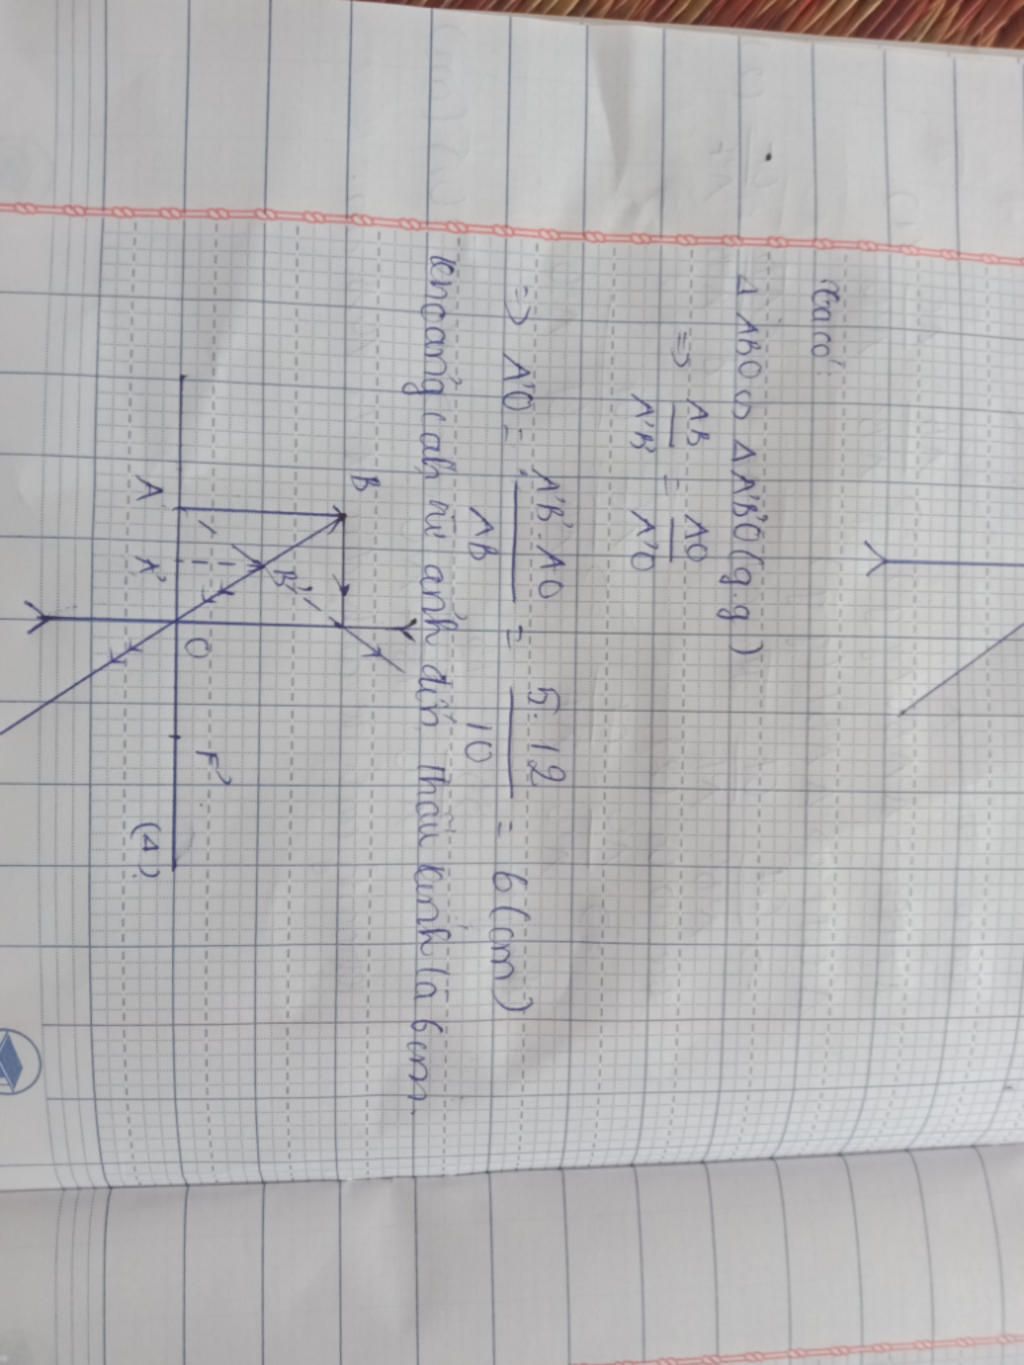 Ta có:
Δ ABO ∽ Δ A'B'O (g.g)
=> AB/A'B' = AO/A'O
=> A'O = A'B'.AO/AB = 5.12/10 = 6 (cm)
Khoảng cah từ ảnh đến thấu kính là 6 cm.
B
B'
A
A'
O
F'
(Δ)